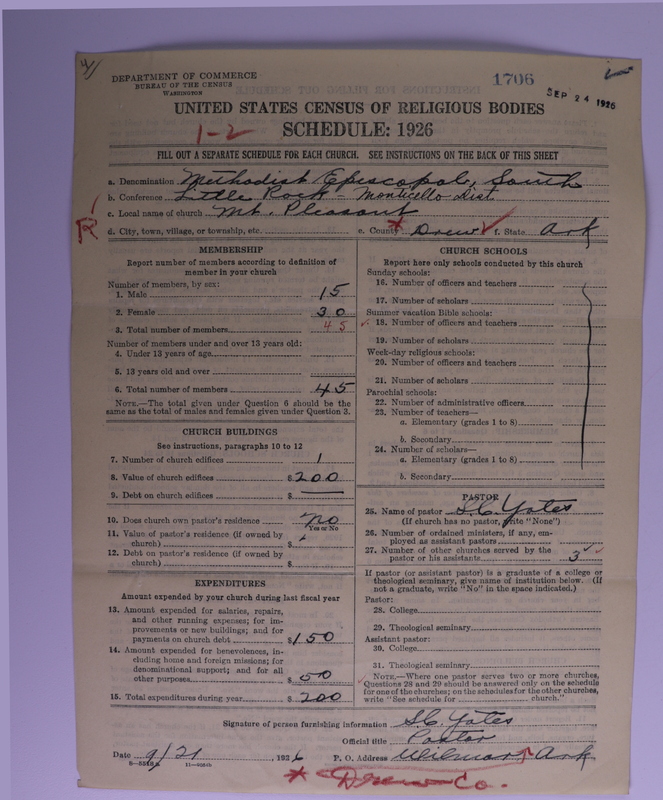 4/
DEPARTMENT OF COMMERCE
BUREAU OF THE CENSUS
WASHINGTON
1706
SEP 24 1926
UNITED STATES CENSUS OF RELIGIOUS BODIES
1-2
SCHEDULE: 1926
FILL OUT A SEPARATE SCHEDULE FOR EACH CHURCH. SEE INSTRUCTIONS ON THE BACK OF THIS SHEET
a. Denomination Methodist Episcopal, South
b. Conference Little Rock - Monticello Dist.
c. Local name of church Mt. Pleasant
R
d. City, town, village, or township, etc. e. County * Drew f. State Ark
MEMBERSHIP
Report number of members according to definition of
member in your church
Number of members, by sex:
1. Male 15
2. Female 30
3. Total number of members 45
Number of members under and over 13 years old:
4. Under 13 years of age
5. 13 years old and over
6. Total number of members 45
NOTE.—The total given under Question 6 should be the
same as the total of males and females given under Question 3.
CHURCH BUILDINGS
See instructions, paragraphs 10 to 12
7. Number of church edifices 1
8. Value of church edifices $200
9. Debt on church edifices $ —
10. Does church own pastor's residence No
Yes or No
11. Value of pastor's residence (if owned by
church) $
12. Debt on pastor's residence (if owned by
church) $
EXPENDITURES
Amount expended by your church during last fiscal year
13. Amount expended for salaries, repairs,
and other running expenses; for im-
provements or new buildings; and for
payments on church debt $150
14. Amount expended for benevolences, in-
cluding home and foreign missions; for
denominational support; and for all
other purposes $50
15. Total expenditures during year $200
CHURCH SCHOOLS
Report here only schools conducted by this church
Sunday schools:
16. Number of officers and teachers
17. Number of scholars
Summer vacation Bible schools:
18. Number of officers and teachers
19. Number of scholars
Week-day religious schools:
20. Number of officers and teachers
21. Number of scholars
Parochial schools:
22. Number of administrative officers
23. Number of teachers—
a. Elementary (grades 1 to 8)
b. Secondary
24. Number of scholars—
a. Elementary (grades 1 to 8)
b. Secondary
PASTOR
25. Name of pastor S.C. Yates
(If church has no pastor, write "None")
26. Number of ordained ministers, if any, em-
ployed as assistant pastors
27. Number of other churches served by the
pastor or his assistants 3
If pastor (or assistant pastor) is a graduate of a college or
theological seminary, give name of institution below. (If
not a graduate, write "No" in the space indicated.)
Pastor:
28. College
29. Theological seminary
Assistant pastor:
30. College
31. Theological seminary
NOTE.—Where one pastor serves two or more churches,
Questions 28 and 29 should be answered only on the schedule
for one of the churches; on the schedules for the other churches,
write "See schedule for church."
Signature of person furnishing information S.C. Yates
Official title Pastor
Date 9/21, 1926 P. O. Address Wilmar, Ark
* Drew Co.